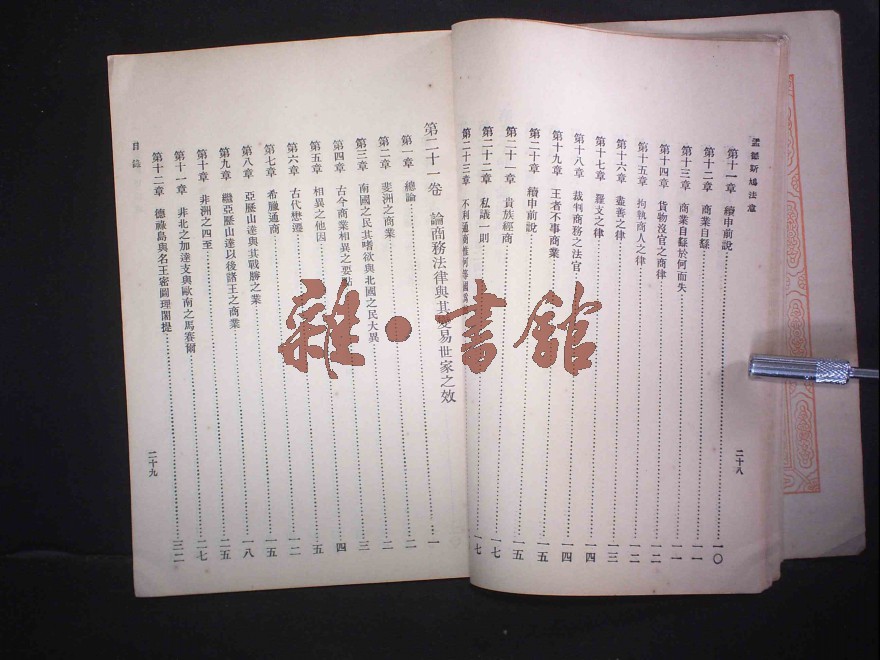 孟德斯鳩法意
第十一章 續申前說 一〇
第十二章 商業自繇 一一
第十三章 商業自繇於何而失 一一
第十四章 貨物沒官之商律 一二
第十五章 拘執商人之律 一二
第十六章 盡善之律 一三
第十七章 羅支之律 一四
第十八章 裁判商務之法官 一四
第十九章 王者不事商業 一五
第二十章 續申前說 一五
第二十一章 貴族經商 一七
第二十二章 私議一則 一七
第二十三章 不利通商 一七
二十八
第二十一卷 論商務法律與其變易世家之效 一
第一章 總論 二
第二章 斐洲之商業 二
第三章 南國之民其嗜欲與北國之民大異 三
第四章 古今商業相異之要點 四
第五章 相異之他因 五
第六章 古代懋遷 一二
第七章 希臘通商 一五
第八章 亞歷山達與其戰勝之業 一八
第九章 繼亞歷山達以後諸王之商業 二五
第十章 非洲之四至 二七
第十一章 非北之加達支與歐南之馬賽爾
第十二章 德祿島與名王密圖理闍提 三二
目錄
二十九
雜·書館